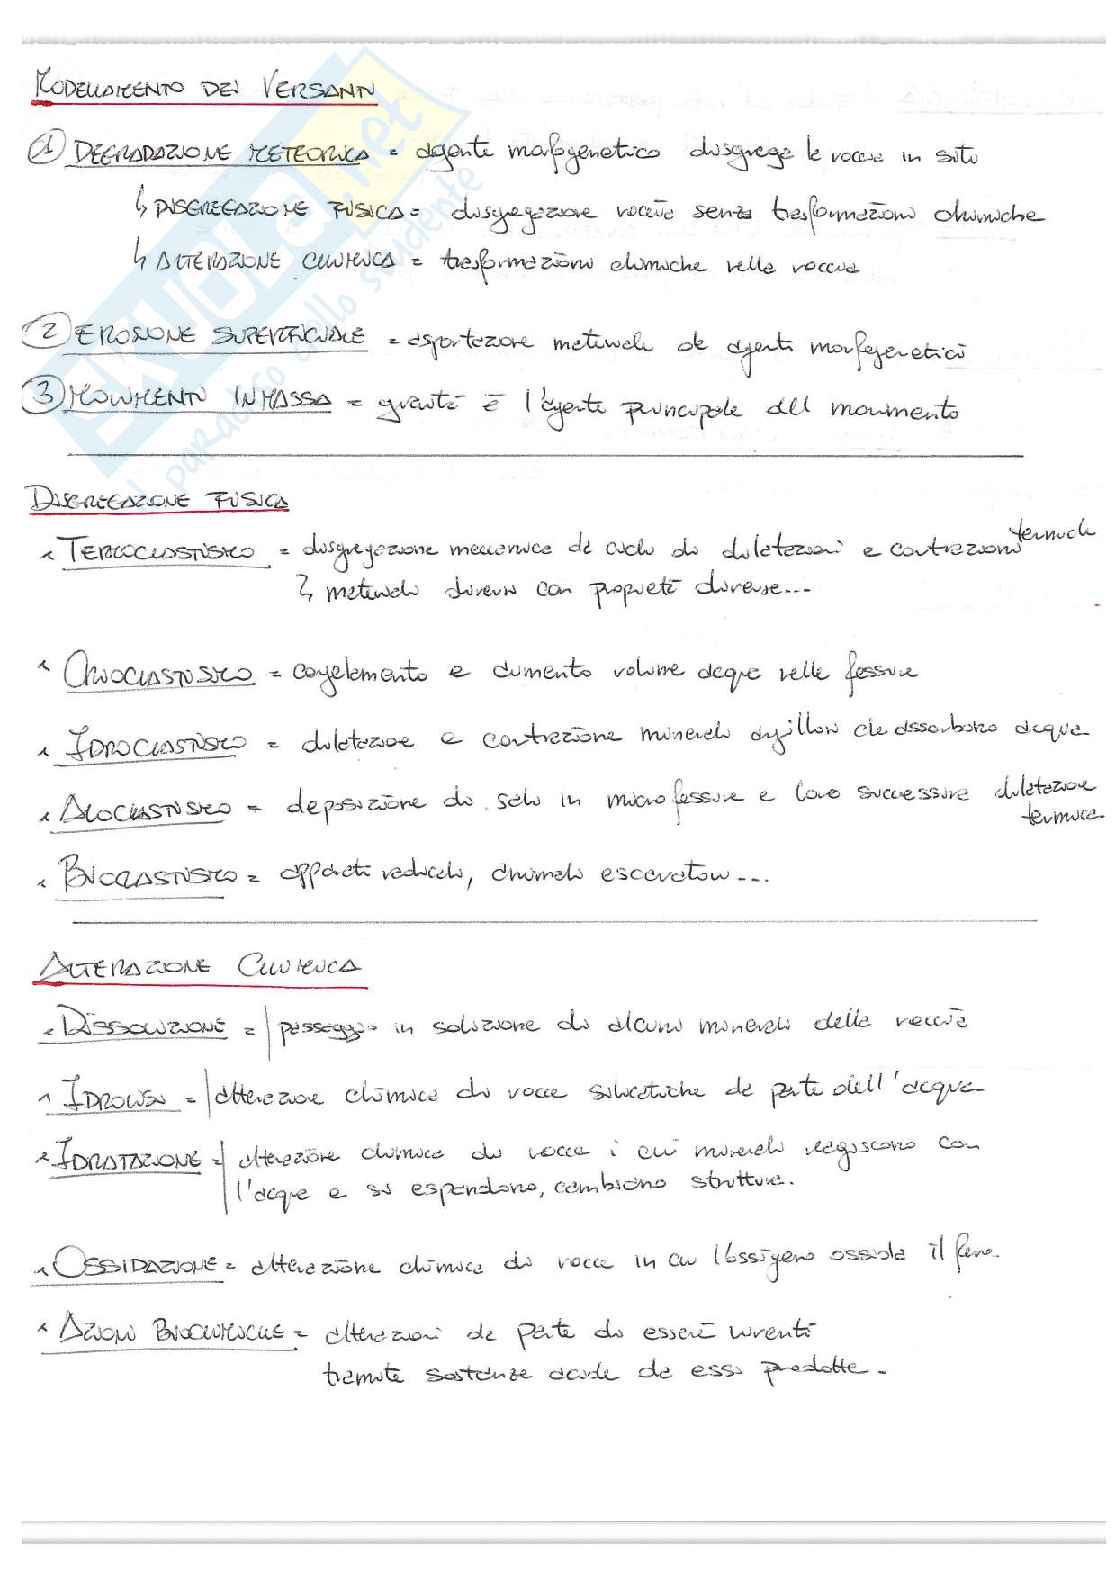 MODELLAMENTO DEI VERSANTI
1 DEGRADAZIONE METEORICA = agente morfogenetico disgrega le rocce in situ
↳ DISGREGAZIONE FISICA = disgregazione roccia senza trasformazioni chimiche
↳ ALTERAZIONE CHIMICA = trasformazioni chimiche nella roccia
2 EROSIONE SUPERFICIALE = asportazione materiale da agenti morfogenetici
3 MOVIMENTO IN MASSA = gravità è l'agente principale del movimento
DISGREGAZIONE FISICA
TERMOCLASTISMO = disgregazione meccanica da ciclo di dilatazioni e contrazioni termiche
↳ materiali diversi con proprietà diverse...
CRIOCLASTISMO = congelamento e aumento volume acqua nelle fessure
IDROCLASTISMO = dilatazione e contrazione minerali argillosi che assorbono acqua
ALOCLASTISMO = deposizione di sali in microfessure e loro successiva dilatazione
termica
BIOCLASTISMO = apparati radicali, animali escavatori...
ALTERAZIONE CHIMICA
DISSOLUZIONE = passaggio in soluzione di alcuni minerali della roccia
IDROLISI = alterazione chimica di rocce silicatiche da parte dell'acqua
IDRATAZIONE = alterazione chimica di rocce i cui minerali reagiscono con
l'acqua e si espandono, cambiano struttura.
OSSIDAZIONE = alterazione chimica di rocce in cui l'ossigeno ossida il ferro.
AZIONI BIOCHIMICHE = alterazioni da parte di esseri viventi
tramite sostanze acide da essi prodotte.
SKUOLA.net
il paradiso dello studente